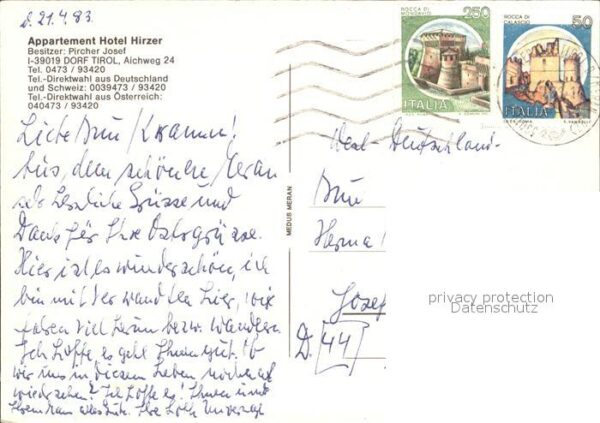 d. 21.4.83.
Appartement Hotel Hirzer
Besitzer: Pircher Josef
I-39019 DORF TIROL, Aichweg 24
Tel. 0473 / 93420
Tel.-Direktwahl aus Deutschland
und Schweiz: 0039473 / 93420
Tel.-Direktwahl aus Österreich:
040473 / 93420
Liebe
Aus dem schönen Meran
herzliche Grüsse und
Dank für Ihre Ostergrüsse.
Hier ist es wunderschön, ich
bin mit Verwandten hier, wir
fahren viel herum bezw. wandern
Ich hoffe, es geht Ihnen gut. Ob
wir uns in diesem Leben nochmal
wiedersehen? Ich hoffe es! Ihnen und
Ihrem Mann alles Gute. Ihre
MEDUS MERAN
ROCCA DI
MONDAVIO
250
ITALIA
ROCCA DI
CALASCIO
50
ITALIA
West-Deutschland
Herma
Josef
D. 44
privacy protection
Datenschutz